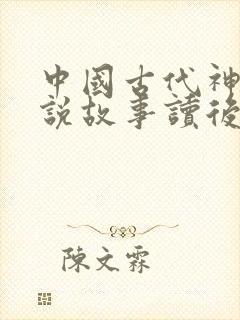 中國古代神
說故事讀後
陳文霖